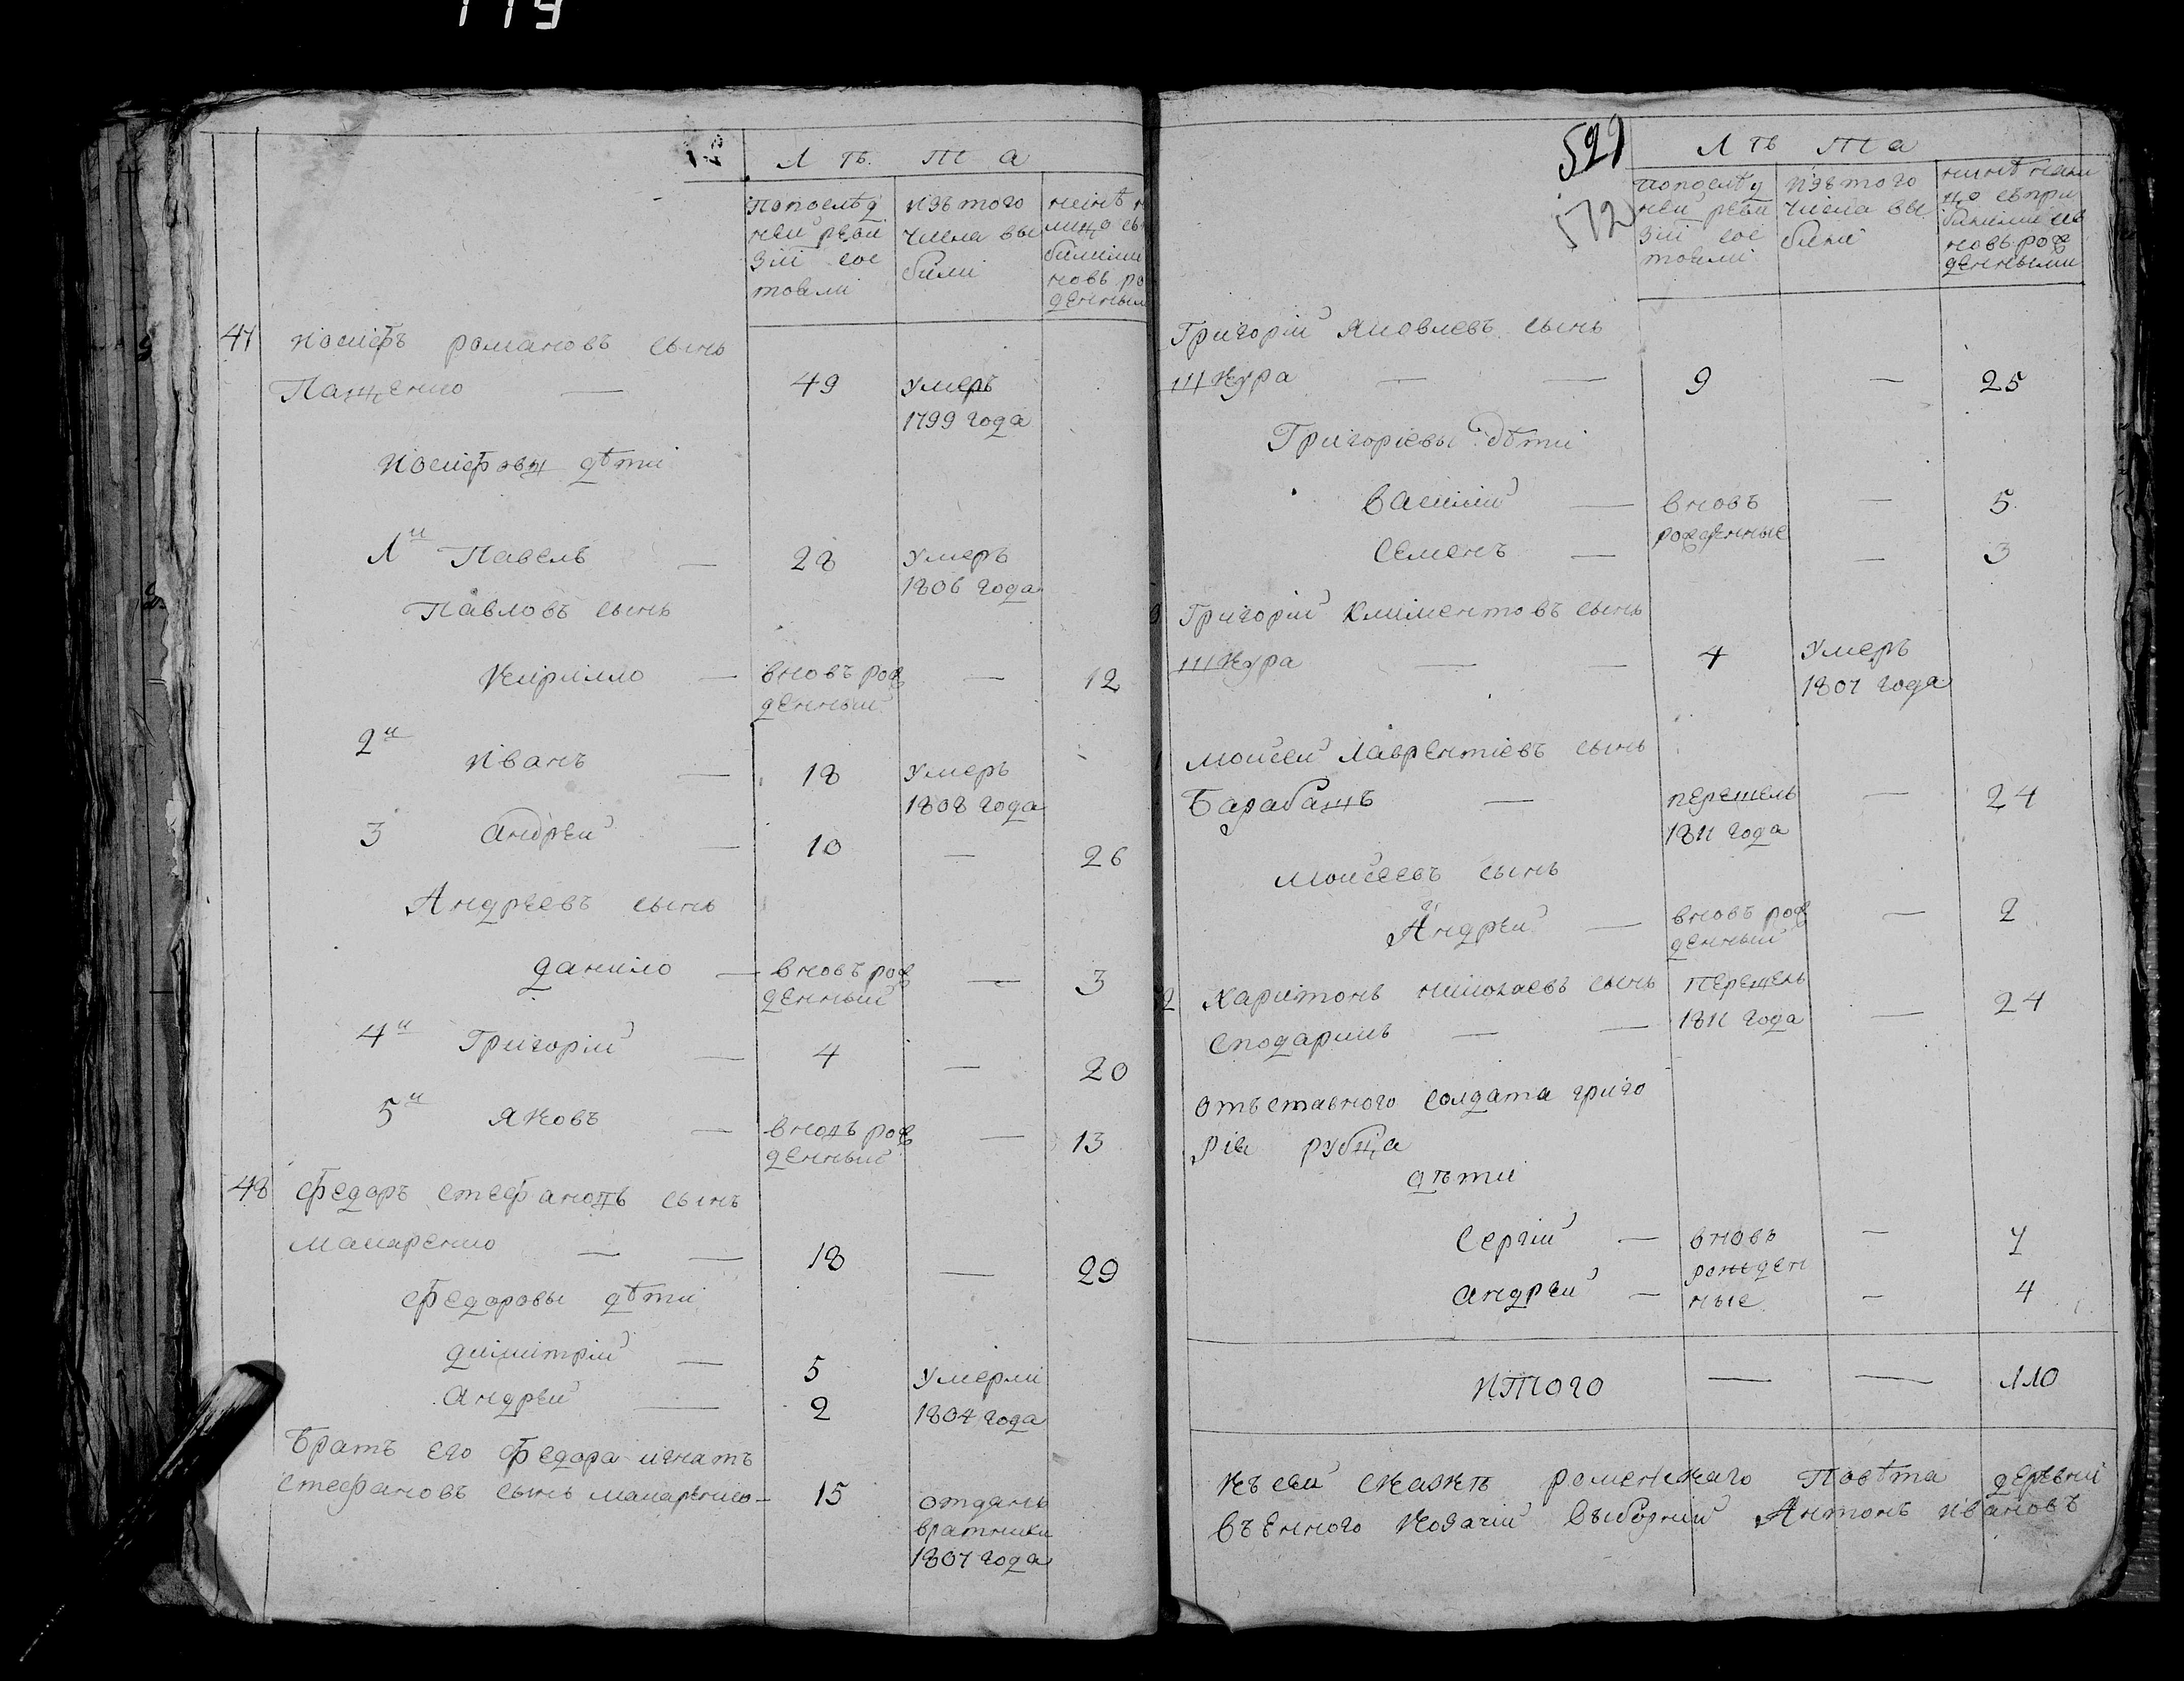 119
Лѣта
по послѣд
ней реви
зіи сос
тояли
изъ того
числа вы
были
нинѣ н
лицо съ
былими
новь ро
денным
47 Иосифъ Романовъ сынъ
Пащенко — 49 умеръ
1799 года
Иосифовы дѣти
1й Павелъ — 28 умеръ
1806 года
Павловъ сынъ
Кирилло — вновь рож — 12
денный
2й Иванъ — 18 умеръ
1808 года
3 Андрей — 10 — 26
Андреевъ сынъ
Данило — вновь рож — 3
денный
4й Григорій — 4 — 20
5й Яковъ — вновь рож — 13
денный
48 Федоръ Стефановъ сынъ
Макаренко — — 18 — 29
Федоровы дѣти
Димитрій — 5 умерли
Андрей — 2 1804 года
Братъ его Федора Игнатъ
Стефановъ сынъ Макаренко — 15 отданъ
вратники
1807 года
529
572
Лѣта
по послѣд
ней реви
зіи сос
тояли
изъ того
числа вы
были
нинѣ нали
цо съ при
былими
новь рож
денными
Григорій Яковлевъ сынъ
Шкура — — 9 — 25
Григоріевы дѣти
Василій — вновь — 5
рожденные
Семенъ — — 3
Григорій Климентовъ сынъ
Шкура — — 4 умеръ
1807 года
Моисей Лаврентіевъ сынъ
Барабашъ — перешелъ — 24
1811 года
Моисеевъ сынъ
Андрей — вновь рож — 2
денный
2 Харитонъ Николаевъ сынъ перешелъ
Сподарикъ — — 1811 года — 24
отъставного солдата Григо
рія Рубца
дѣти
Сергій — вновь — 7
рожден
Андрей — ные — 4
Итого — — 110
Къ сей сказкѣ роменскаго повѣта деревни
козачій выборній Антонъ Ивановъ